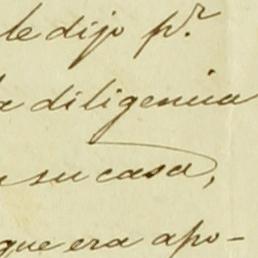 le dijo p.r
la diligencia
su casa,
que era apo-